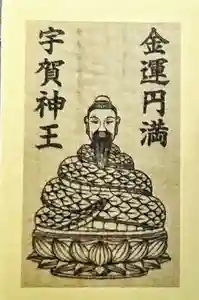 金運円満
宇賀神王